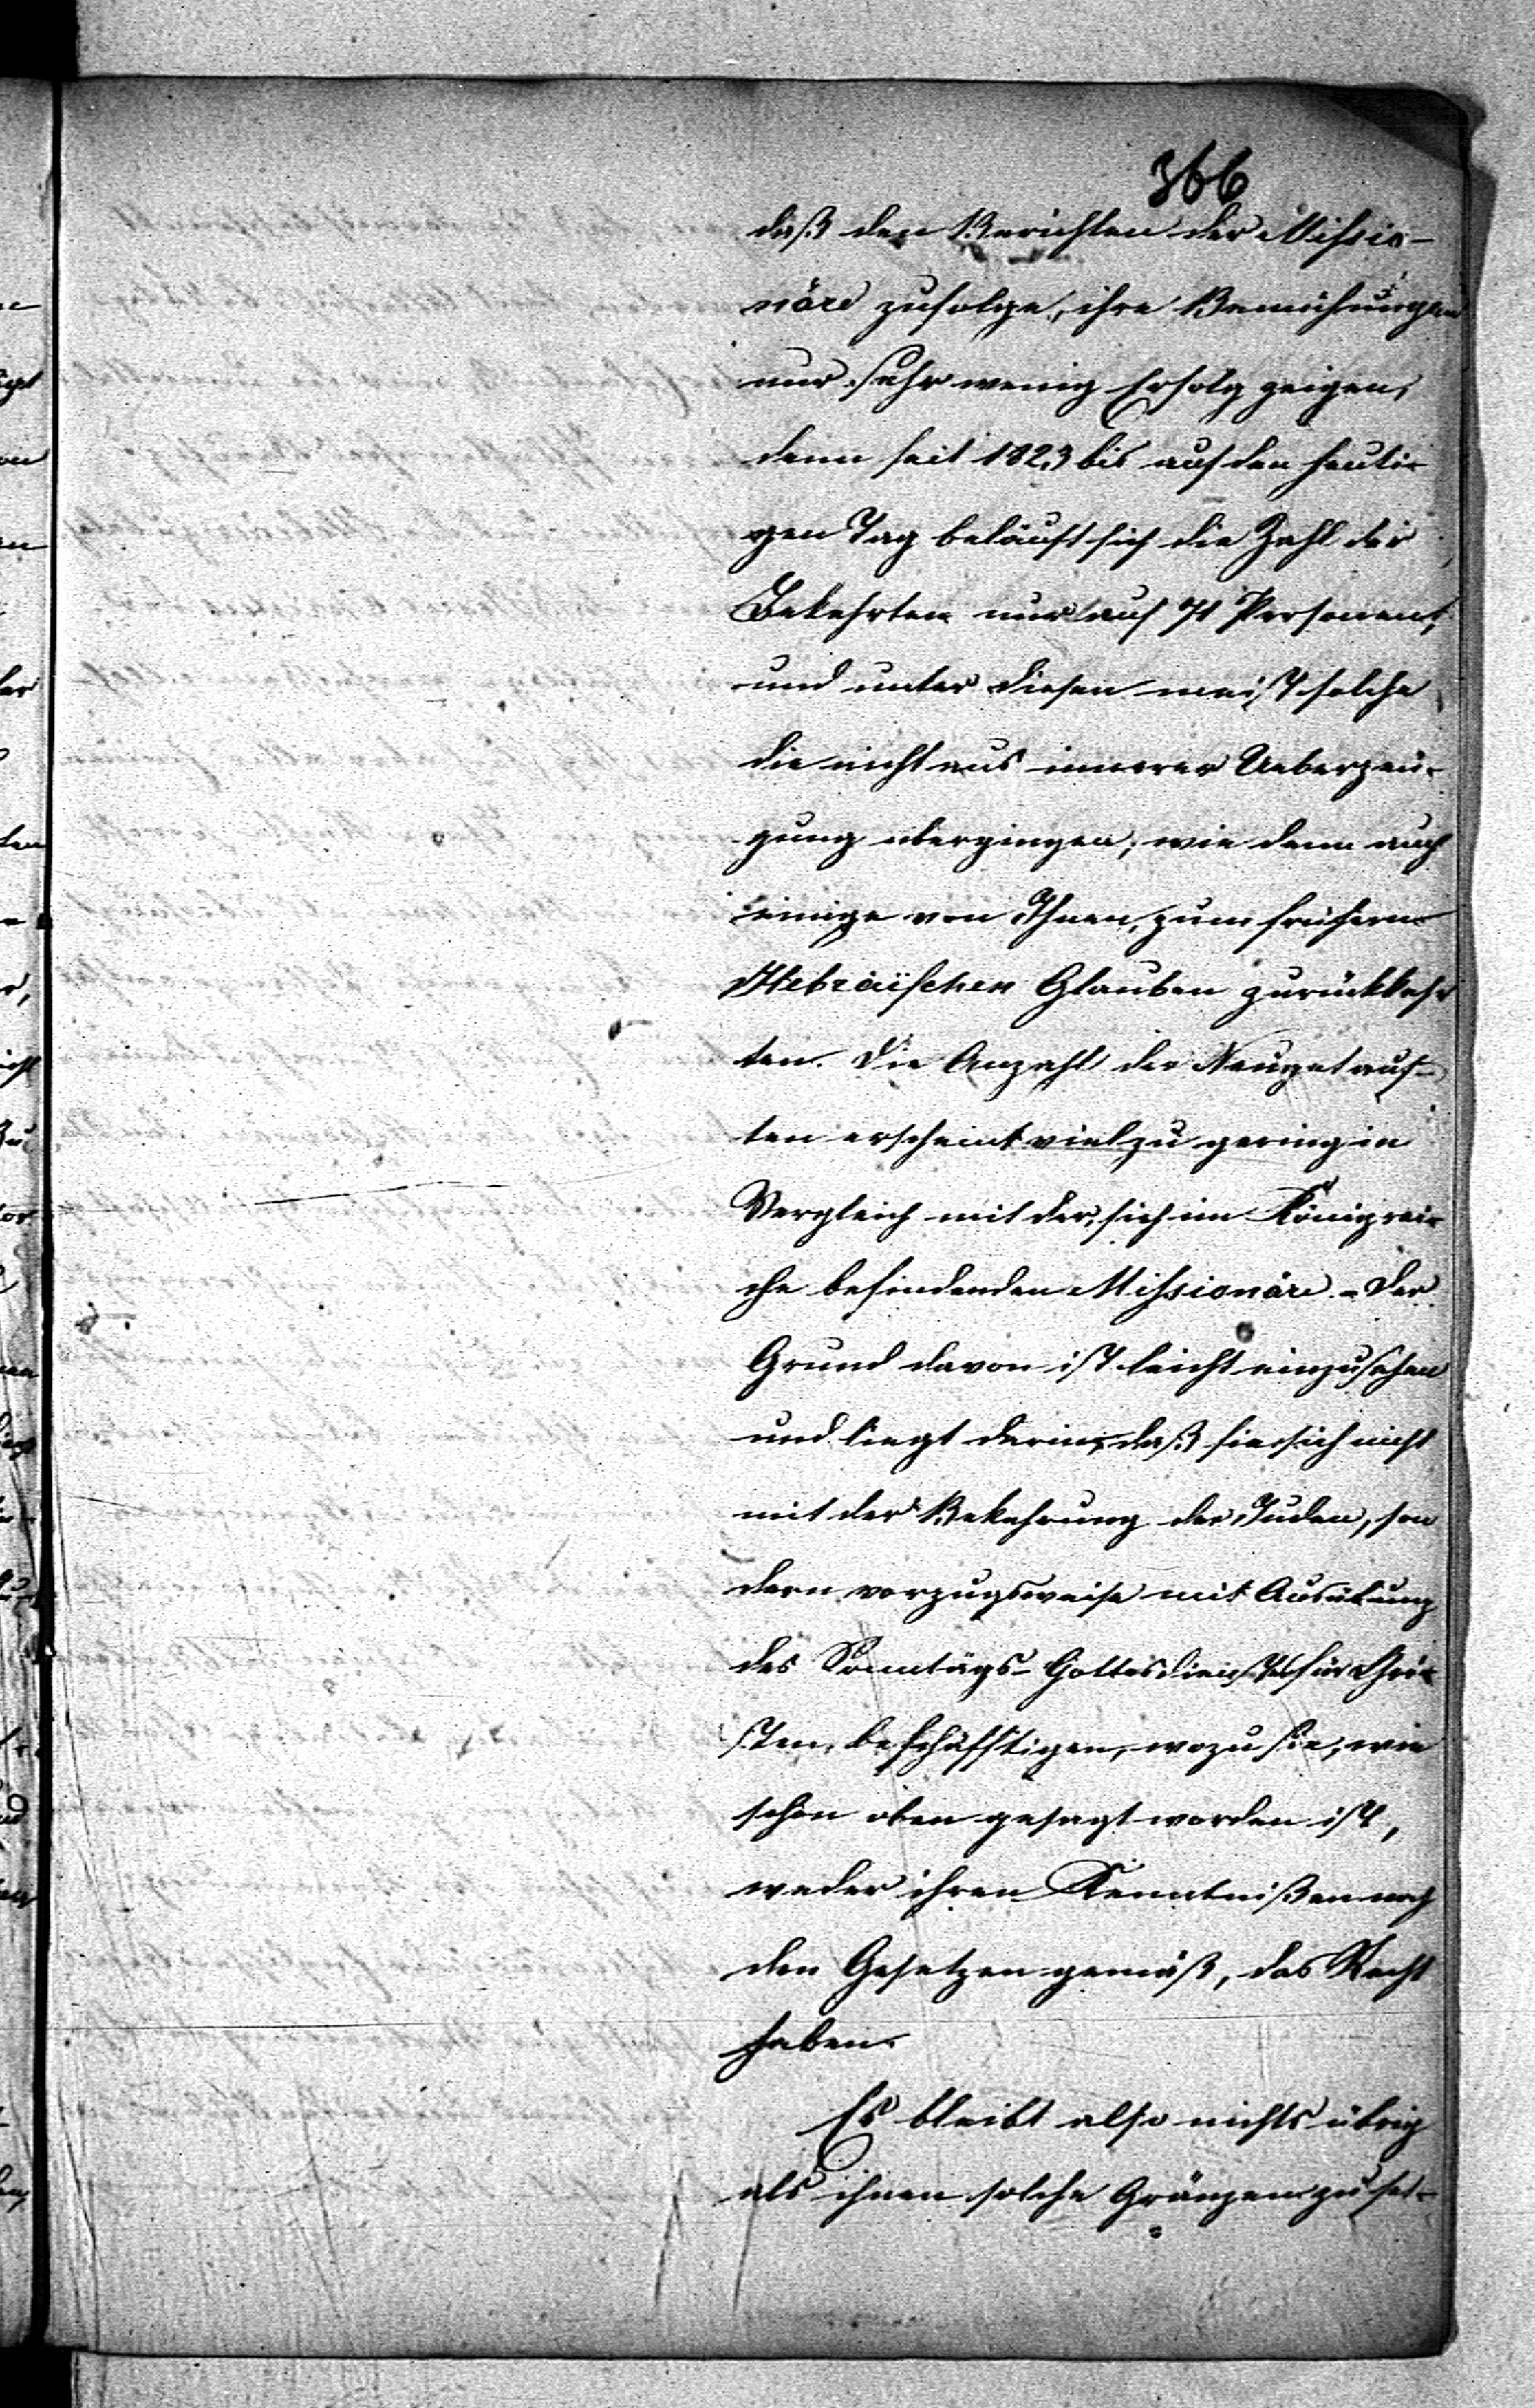 366
daß den Berichten der Missio-
näre zufolge, ihre Bemühungen
nur sehr wenig Erfolg zeigen,
denn seit 1823 bis auf den heuti-
gen Tag beläuft sich die Zahl der
Bekehrten nur auf 71 Personen,
und unter diesen meist solche
die nicht aus innerer Ueberzeu-
gung übergingen, wie denn auch
einige von Ihnen, zum frühern
Hebräischen Glauben zurückkehr
ten. Die Anzahl der Neugetauf-
ten erscheint viel zu gering in
Vergleich mit der, sich im Königrei-
che befindenden Missionäre. - Der
Grund davon ist leicht einzusehen
und liegt darin, daß sie sich nicht
mit der Bekehrung der Juden, son
dern vorzugsweise mit Ausübung
des Sonntags-Gottesdienstes für Chri-
sten beschäfftigen, wozu sie, wie
schon oben gesagt worden ist,
weder ihren Kenntnißen noch
den Gesetzen gemäß, das Recht
haben.
Es bleibt also nichts übrig
als ihnen solche Gränzen zu set-